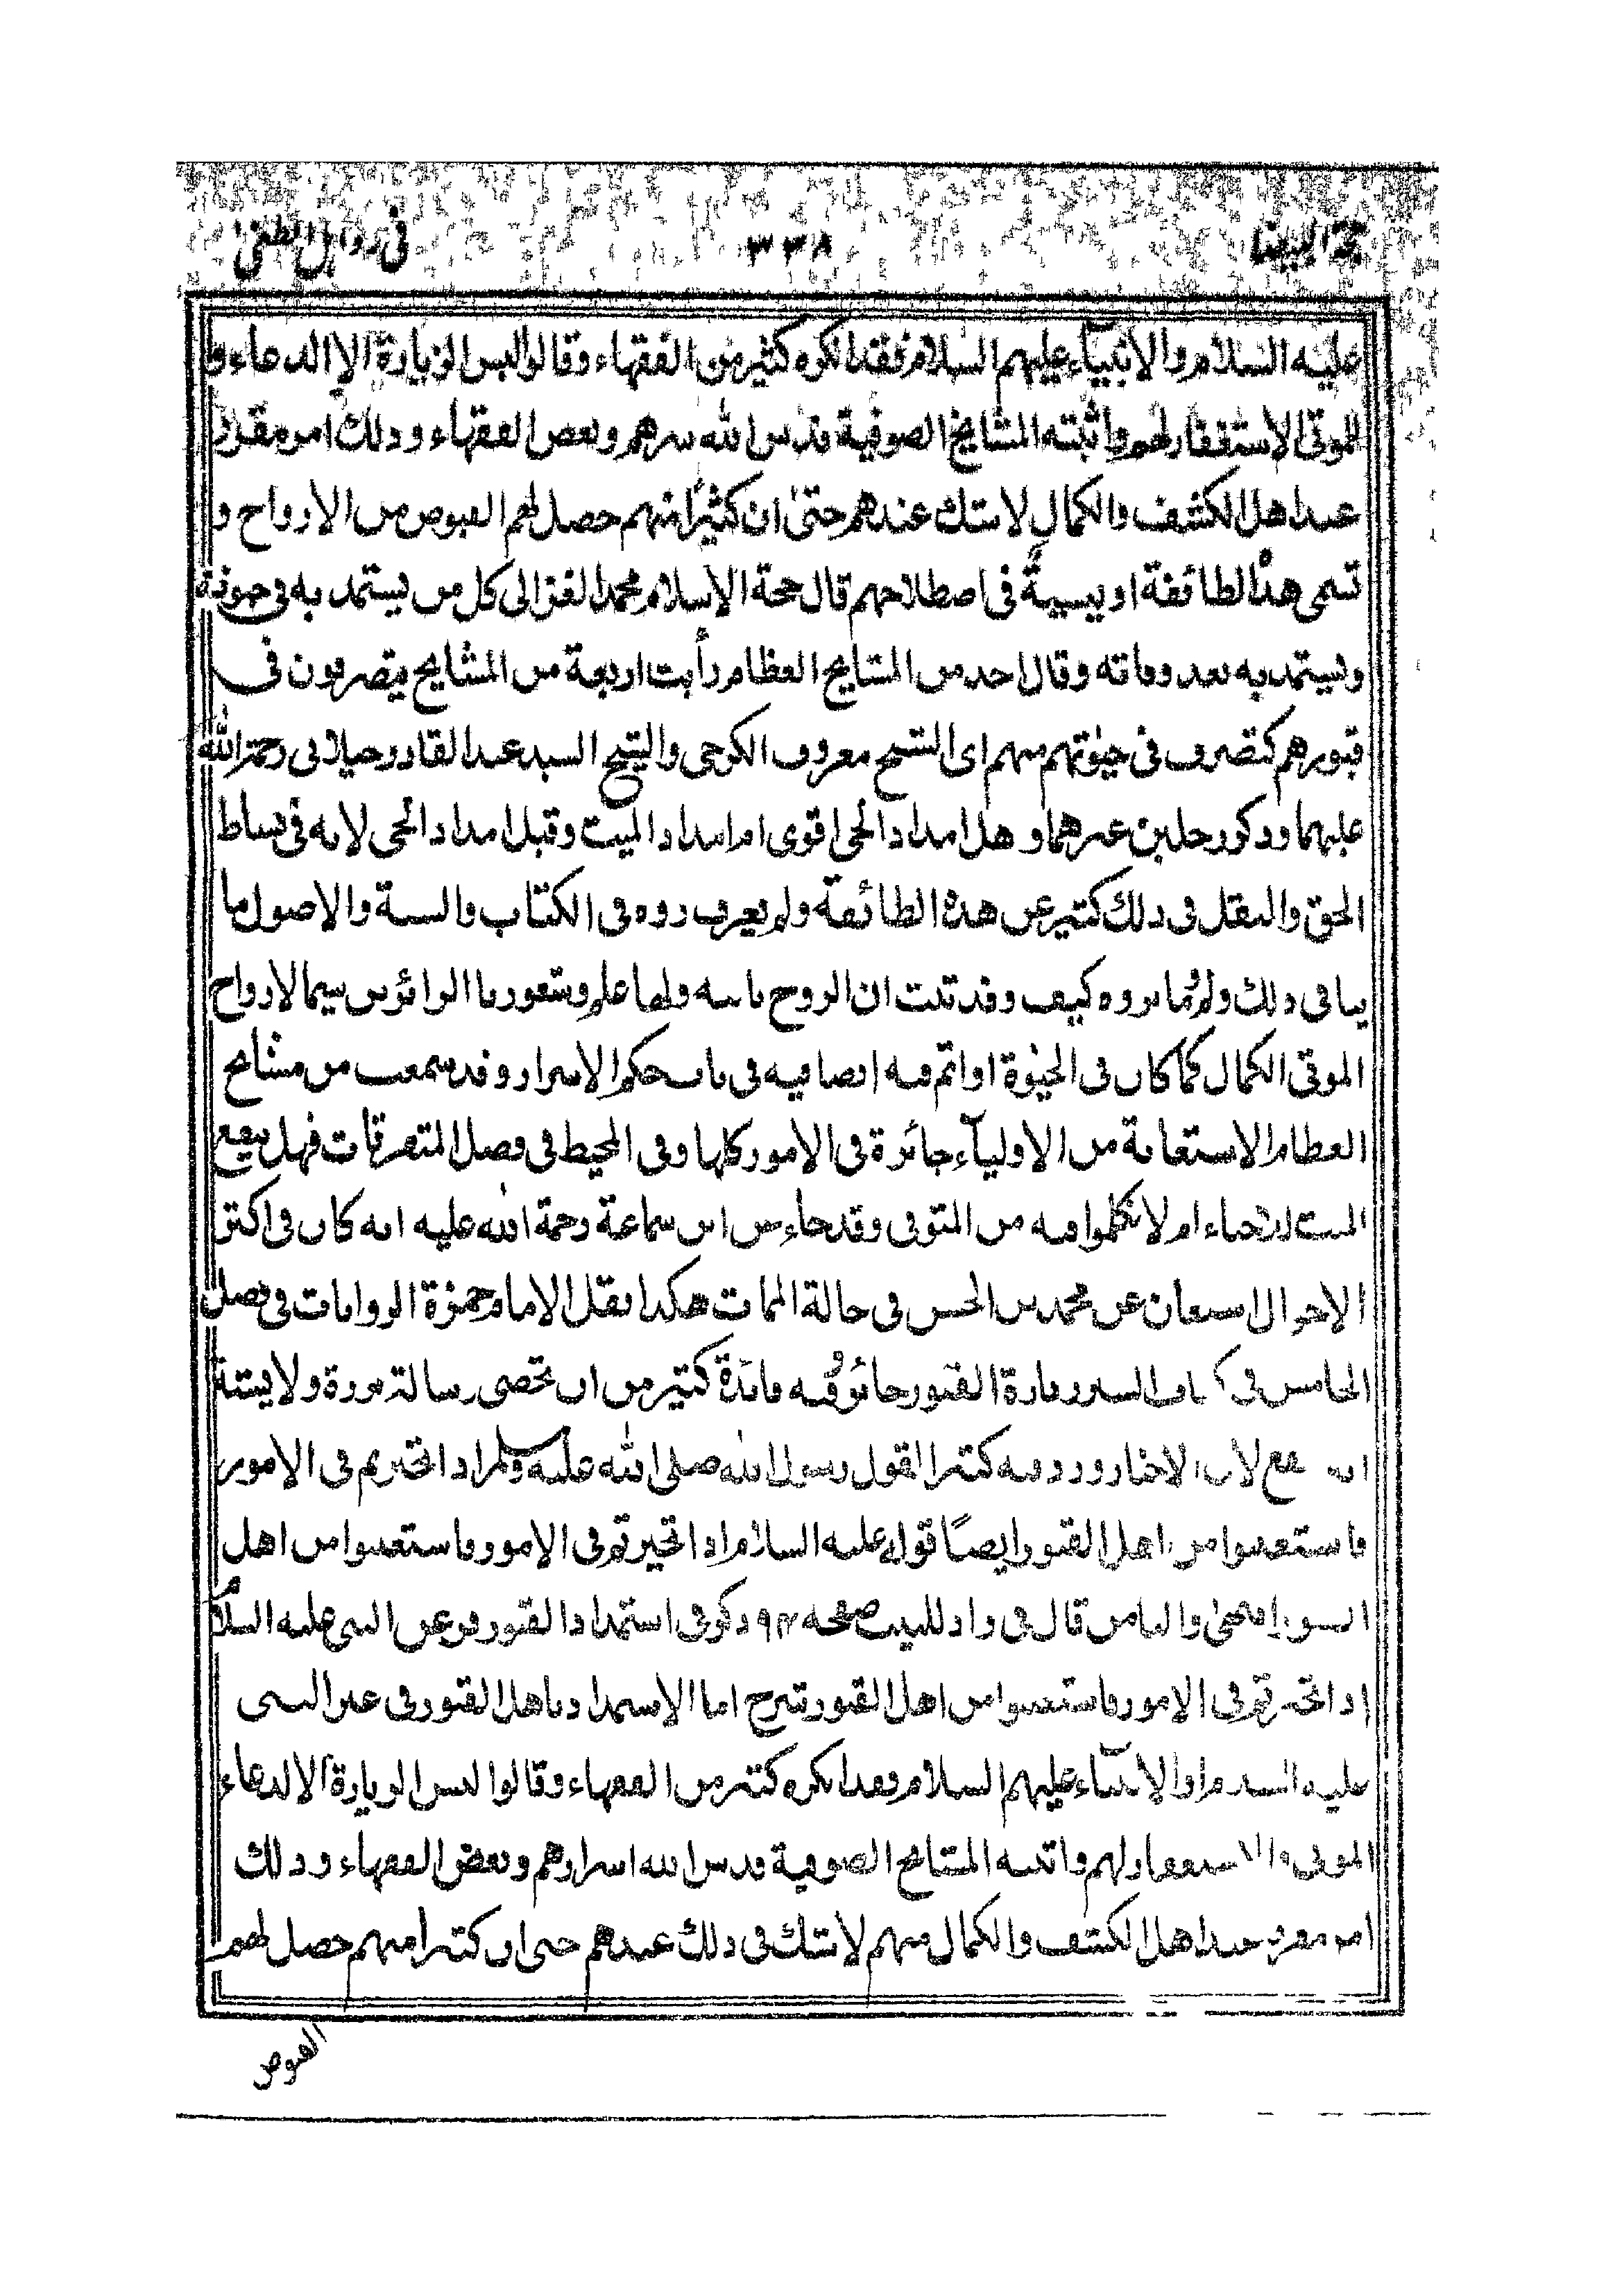 ٣٣٨
عليه السلام والانبياء عليهم السلام فقد انكره كثير من الفقهاء وقالوا ليس الزيارة الا الدعاء و
الموتى الاستغفار لهم واثبته المشايخ الصوفية قدس الله سرهم وبعض الفقهاء وذلك امر مقرر
عند اهل الكشف والكمال لاشك عندهم حتى ان كثيرًا منهم حصل لهم الفيوض من الارواح و
تسمى هذا الطائفة اويسية في اصطلاحهم قال حجة الاسلام محمد الغزالى كل من يستمد به في حيوته
ويستمد به بعد وفاته وقال احد من المشايخ العظام رأيت اربعة من المشايخ يتصرفون في
قبورهم كتصرف في حيوتهم منهم اى الشيخ معروف الكرخى والشيخ السيد عبد القادر جيلانى رحمة الله
عليهما وذكور جلين غيرهما و هل امداد الحى اقوى ام امداد الميت وقيل امداد الحى لانه في بساط
الحق والنقل في ذلك كثير عن هذه الطائفة ولم يعرف روه في الكتاب والسنة والاصول ما
ينافى ذلك ولم وه كيف وقد ثبت ان الروح باسه ولها علم وشعور باالزائرين سيما لارواح
الموتى الكمال كما كان في الحيوة او اتم فيه ايضا فيه في باب حكم الاسرار وقد سمعت من مشايخ
العظام الاستعانة من الاولياء جائزة في الامور كلها وفى المحيط في فصل المتفرقات فهل ينفع
الميت لاحياء ام لا تكلموا فيه من المتوفى وقد جاء عن ابن سماعة رحمة الله عليه انه كان في اكثر
الاحوال استعان عن محمد بن الحسن في حالة الممات هكذا نقل الامام حمزة الروايات في فصل
الخامس في زيارة القبور جائز وفيه فائدة كثير من ان تحصى
لان الاخبار ورد فيه كثيرا لقول رسول الله صلى الله عليه وسلم اذا تحيرتم في الامور
فاستعينوا من اهل القبور ايضًا قوله عليه السلام اذا تحيرتم في الامور فاستعينوا من اهل
القبور والثامن قال في زاد للبيب صفحه ٩٣ ذكر في استمداد القبور عن النبى عليه السلام
اذا تحيرتم في الامور فاستعينوا من اهل القبور شرح اما الاستمداد باهل القبور في غير النبى
عليه السلام او الانبياء عليهم السلام فقد انكره كثير من الفقهاء وقالوا ليس الزيارة الا الدعاء
الموتى والاستغفار لهم واثبته المشايخ الصوفية قدس الله اسرارهم وبعض الفقهاء وذلك
امر مقرر عند اهل الكشف والكمال منهم لاشك في ذلك عندهم حتى ان كثيرا منهم حصل لهم
الفيوض